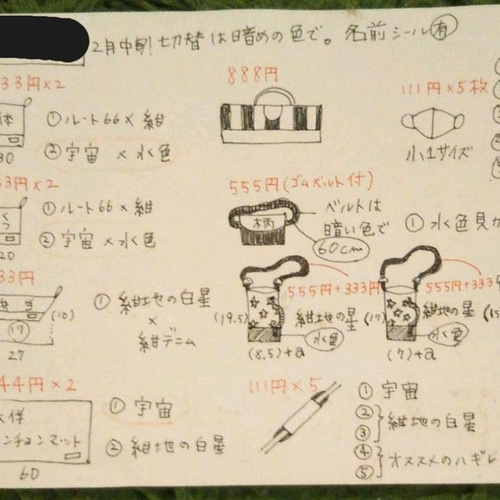 2月中旬! 切替は暗めの色で。名前シール有
33円×2
体
30
① ルート66×紺
② 宇宙×水色
888円
111円×5枚
小1サイズ
33円×2
くつ
20
① ルート66×紺
② 宇宙×水色
555円(ゴムベルト付)
柄
ベルトは
暗い色で
60cm
① 水色
33円
弁当
(17)
(10)
27
① 紺地の白星
×
紺デニム
555円+333円
(19.5)
紺地の星
水色
(8.5)+a
555円+333
(17)
紺地の星
水色
(7)+a
(15
44円×2
ンチョンマット
60
① 宇宙
② 紺地の白星
111円×5
① 宇宙
②
③ 紺地の白星
④
⑤ オススメのハギレ